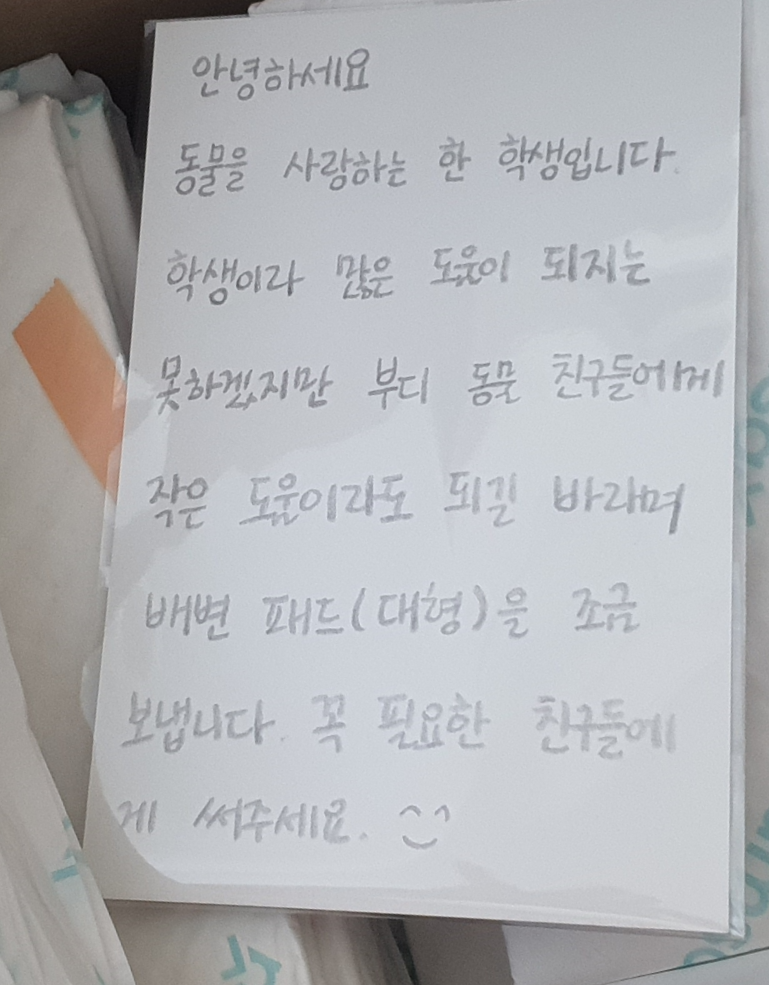 안녕하세요
동물을 사랑하는 한 학생입니다.
학생이라 많은 도움이 되지는
못하겠지만 부디 동물 친구들에게
작은 도움이라도 되길 바라며
배변 패드(대형)을 조금
보냅니다. 꼭 필요한 친구들에
게 써주세요.